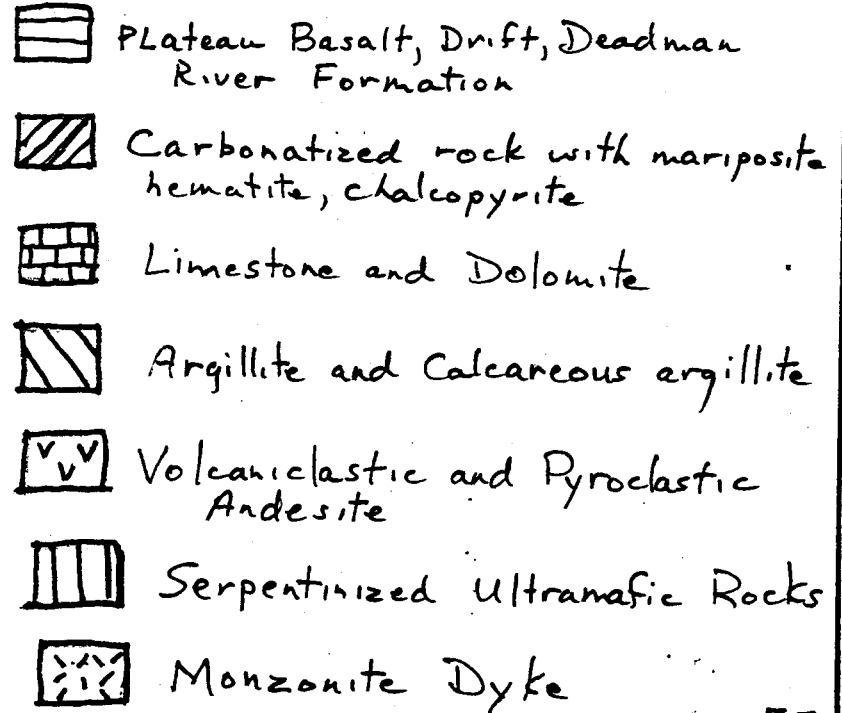 Plateau Basalt, Drift, Deadman
River Formation
Carbonatized rock with mariposite
hematite, chalcopyrite
Limestone and Dolomite
Argillite and Calcareous argillite
Volcaniclastic and Pyroclastic
Andesite
Serpentinized Ultramafic Rocks
Monzonite Dyke